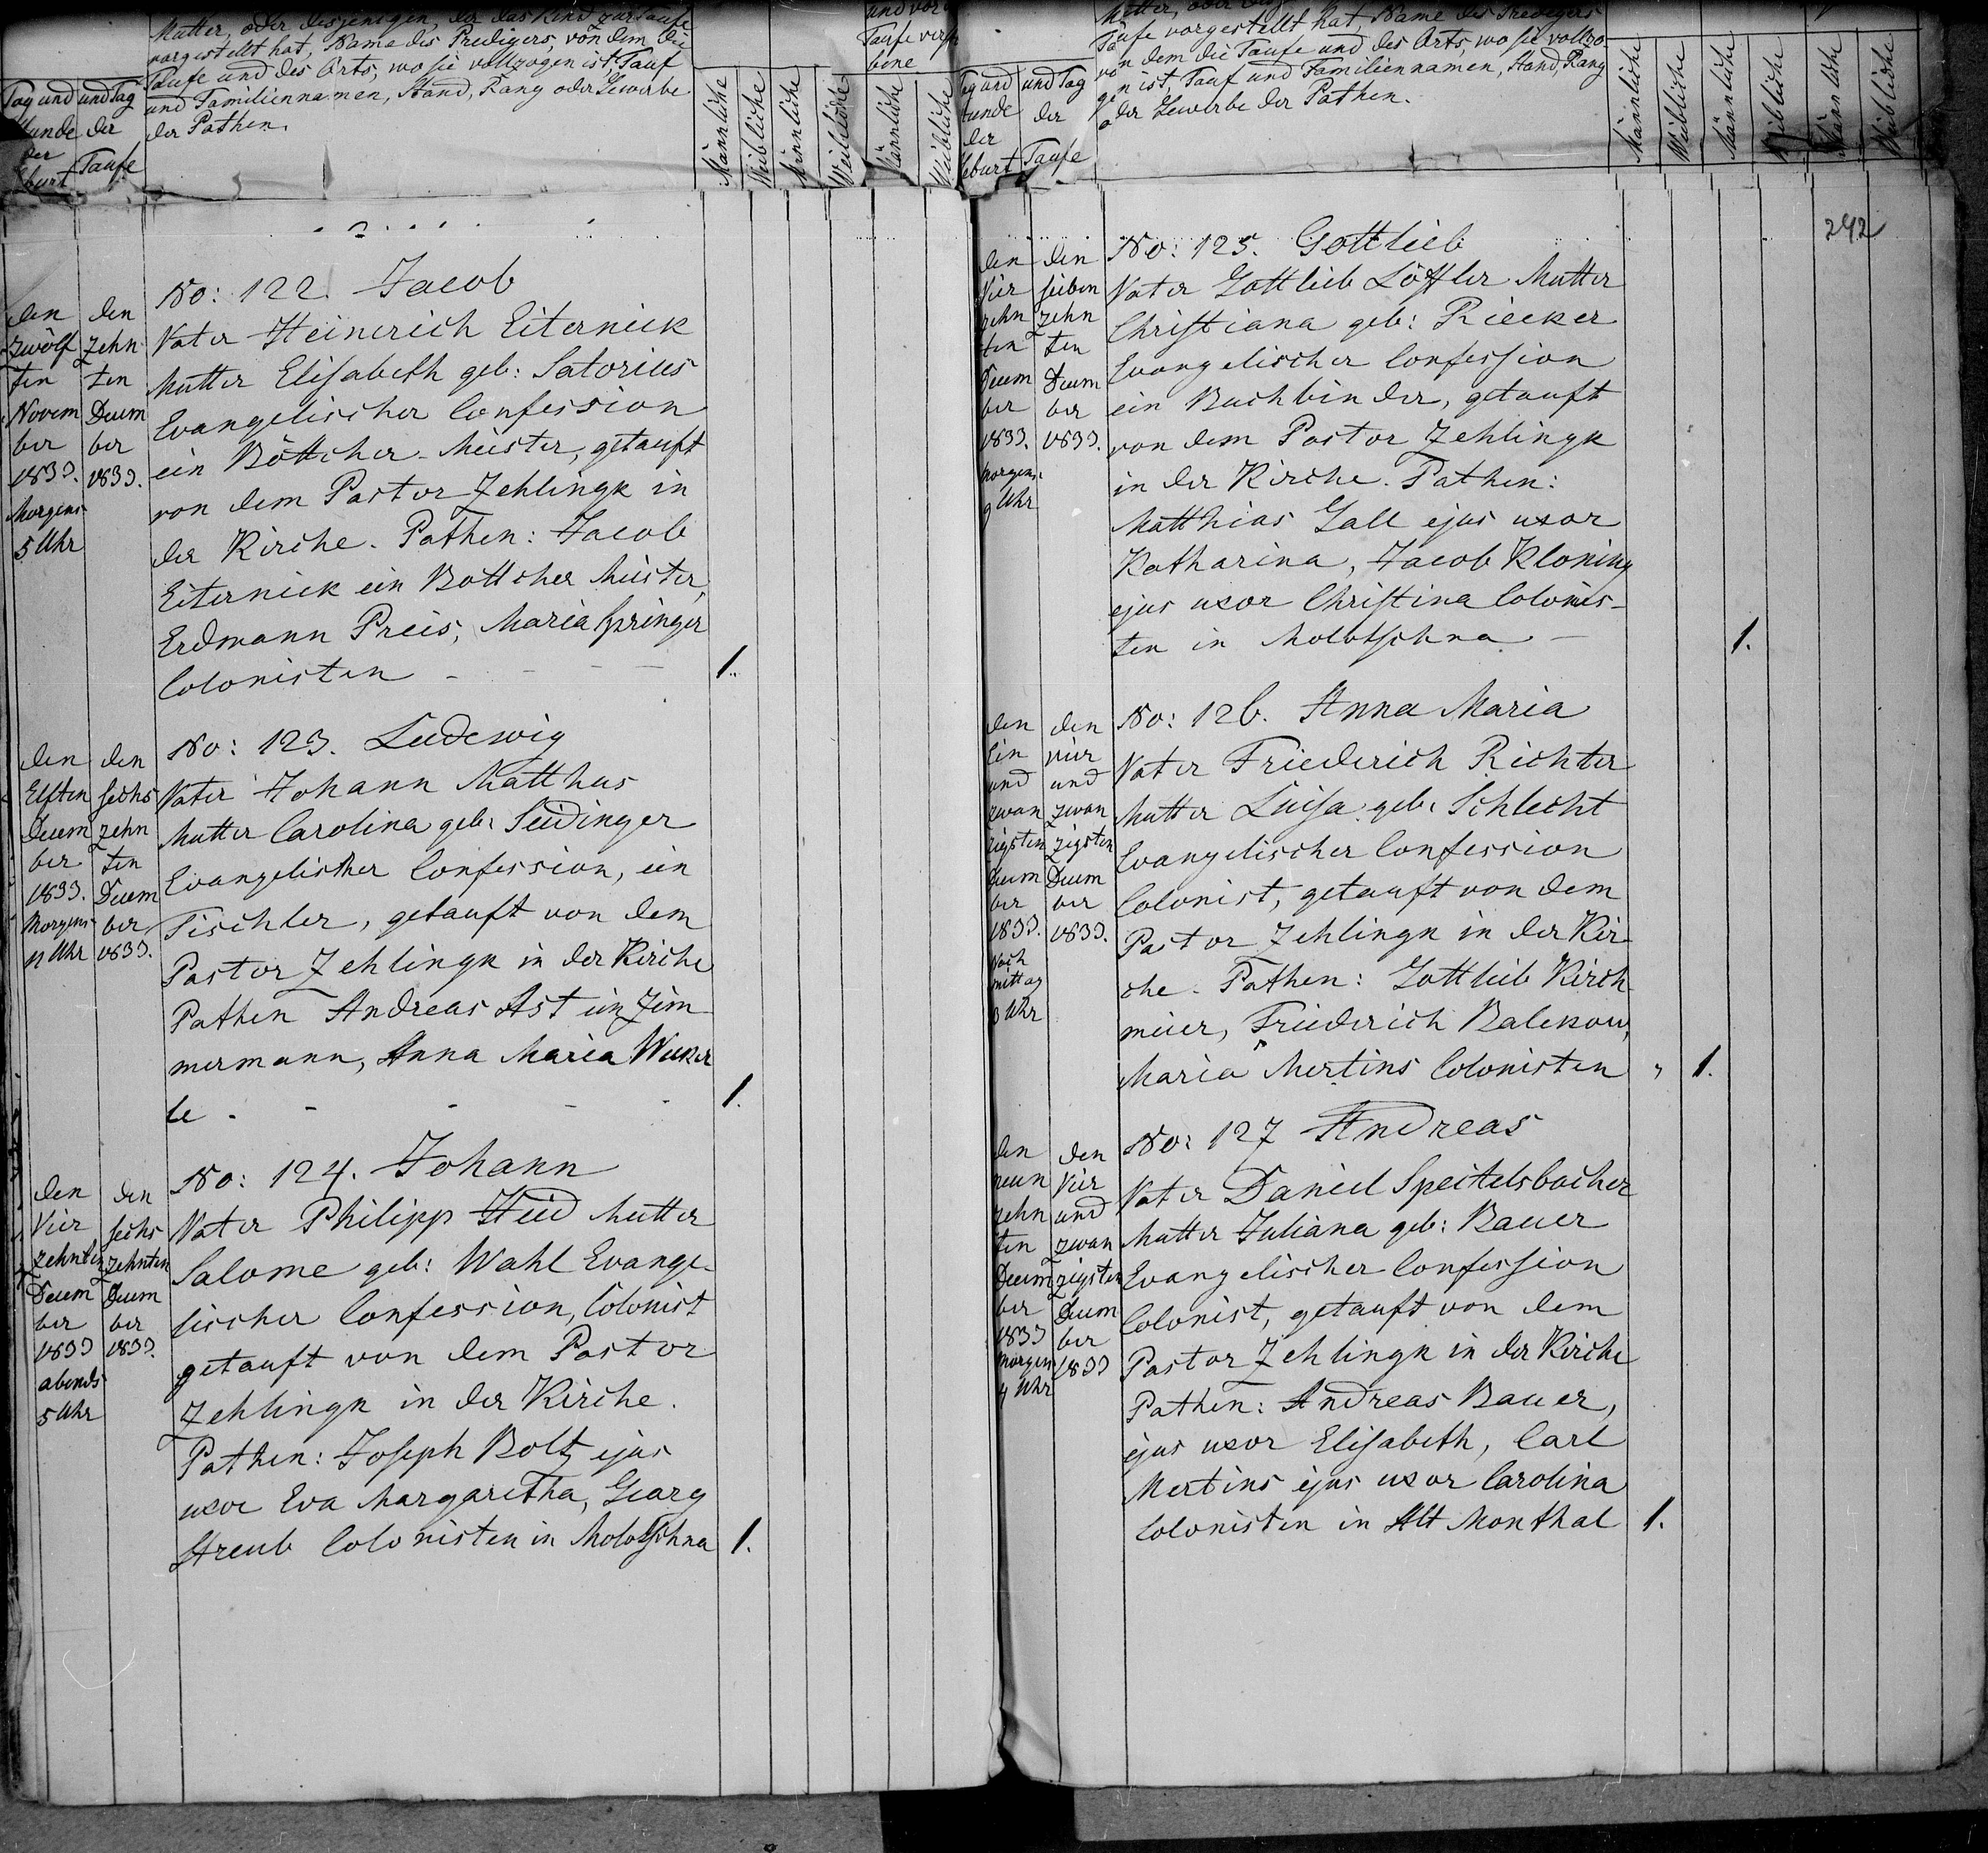 Mutter, oder desjenigen, der das Kind zur Taufe
vorgestellt hat, Name des Predigers, von dem die
Taufe und des Orts, wo sie vollzogen ist, Tauf
und Familiennamen, Stand, Rang oder Gewerbe
der Pathen.
Tag und
Stunde
der
Geburt
und Tag
der
Taufe
Männliche
Weibliche
Männliche
Weibliche
Männliche
Weibliche
No: 122. Jacob
den
zwölf
ten
Novem
ber
1833.
Morgens
5 Uhr
den
zehn
ten
Decem
ber
1833.
Vater Heinerich Eiternick
Mutter Elisabeth geb: Satorius
Evangelischer Confession
ein Böttcher-Meister, getauft
von dem Pastor Zehlingk in
der Kirche. Pathen: Jacob
Eiternick ein Bottcher Meister,
Erdmann Preis, Maria Springer
Colonisten - - - 1.
No: 123. Ludewig
den
Elften
Decem
ber
1833.
Morgens
11 Uhr
den
sechs
zehn
ten
Decem
ber
1833.
Vater Johann Matthus
Mutter Carolina geb: Seidinger
Evangelischer Confession, ein
Tischler, getauft von dem
Pastor Zehlingk in der Kirche
Pathen Andreas Ast ein Zim
mermann, Anna Maria Wecker
le - - - - 1.
No: 124. Johann
den
Vier
zehnten
Decem
ber
1833
abends
5 Uhr
den
sechs
zehnten
Decem
ber
1833.
Vater Philipp Heid Mutter
Salome geb: Wahl Evange-
lischer Confession, Colonist
getauft von dem Pastor
Zehlingk in der Kirche.
Pathen: Joseph Boltz ejus
uxor Eva Margaretha, Georg
Streub Colonisten in Molotschna 1.
Taufe vorgestellt hat, Name des Predigers
von dem die Taufe und des Orts, wo sie vollzo-
gen ist, Tauf und Familiennamen, Stand, Rang
oder Gewerbe der Pathen.
Tag und
Stunde
der
Geburt
und Tag
der
Taufe
Männliche
Weibliche
Männliche
Weibliche
Männliche
Weibliche
242
No: 125. Gottlieb
den
Vier
zehn
ten
Decem
ber
1833.
Morgens
9 Uhr
den
sieben
zehn
ten
Decem
ber
1833.
Vater Gottlieb Löffler Mutter
Christiana geb: Riecker
Evangelischer Confession
ein Buchbinder, getauft
von dem Pastor Zehlingk
in der Kirche. Pathen:
Matthias Gall ejus uxor
Katharina, Jacob Kloning
ejus uxor Christina Colonis-
ten in Molotschna - 1.
No: 126. Anna Maria
den
Ein
und
zwan
zigsten
Decem
ber
1833.
Nach
mittag
3 Uhr
den
vier
und
zwan
zigsten
Decem
ber
1833.
Vater Friederich Richter
Mutter Luisa geb: Schlecht
Evangelischer Confession
Colonist, getauft von dem
Pastor Zehlingk in der Kir
che. Pathen: Gottlieb Kirch
meier, Friederich Balckow,
Maria Mertins Colonisten " 1.
No: 127 Andreas
den
neun
zehn
ten
Decem
ber
1833
Morgens
4 Uhr
den
Vier
und
zwan
zigsten
Decem
ber
1833
Vater Daniel Speitelsbacher
Mutter Juliana geb: Bauer
Evangelischer Confession
Colonist, getauft von dem
Pastor Zehlingk in der Kirche
Pathen: Andreas Bauer,
ejus uxor Elisabeth, Carl
Mertins ejus uxor Carolina
Colonisten in Alt Monthal 1.